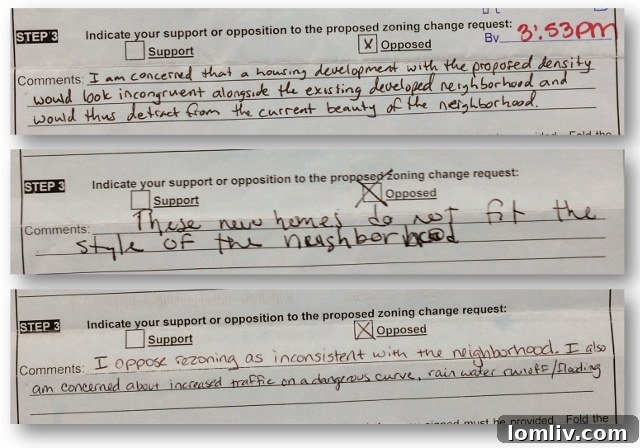 STEP 3 Indicate your support or opposition to the proposed zoning change request:
By 3:53pm
Support X Opposed
Comments: I am concerned that a housing development with the proposed density
would look incongruent alongside the existing developed neighborhood and
would thus detract from the current beauty of the neighborhood.
Fold the
STEP 3 Indicate your support or opposition to the proposed zoning change request:
Support X Opposed
Comments: These new homes do not fit the
style of the neighborhood
STEP 3 Indicate your support or opposition to the proposed zoning change request:
Support X Opposed
Comments: I oppose rezoning as inconsistent with the neighborhood. I also
am concerned about increased traffic on a dangerous curve, rain water runoff/flooding
must be provided. Fold the
lomliv.com